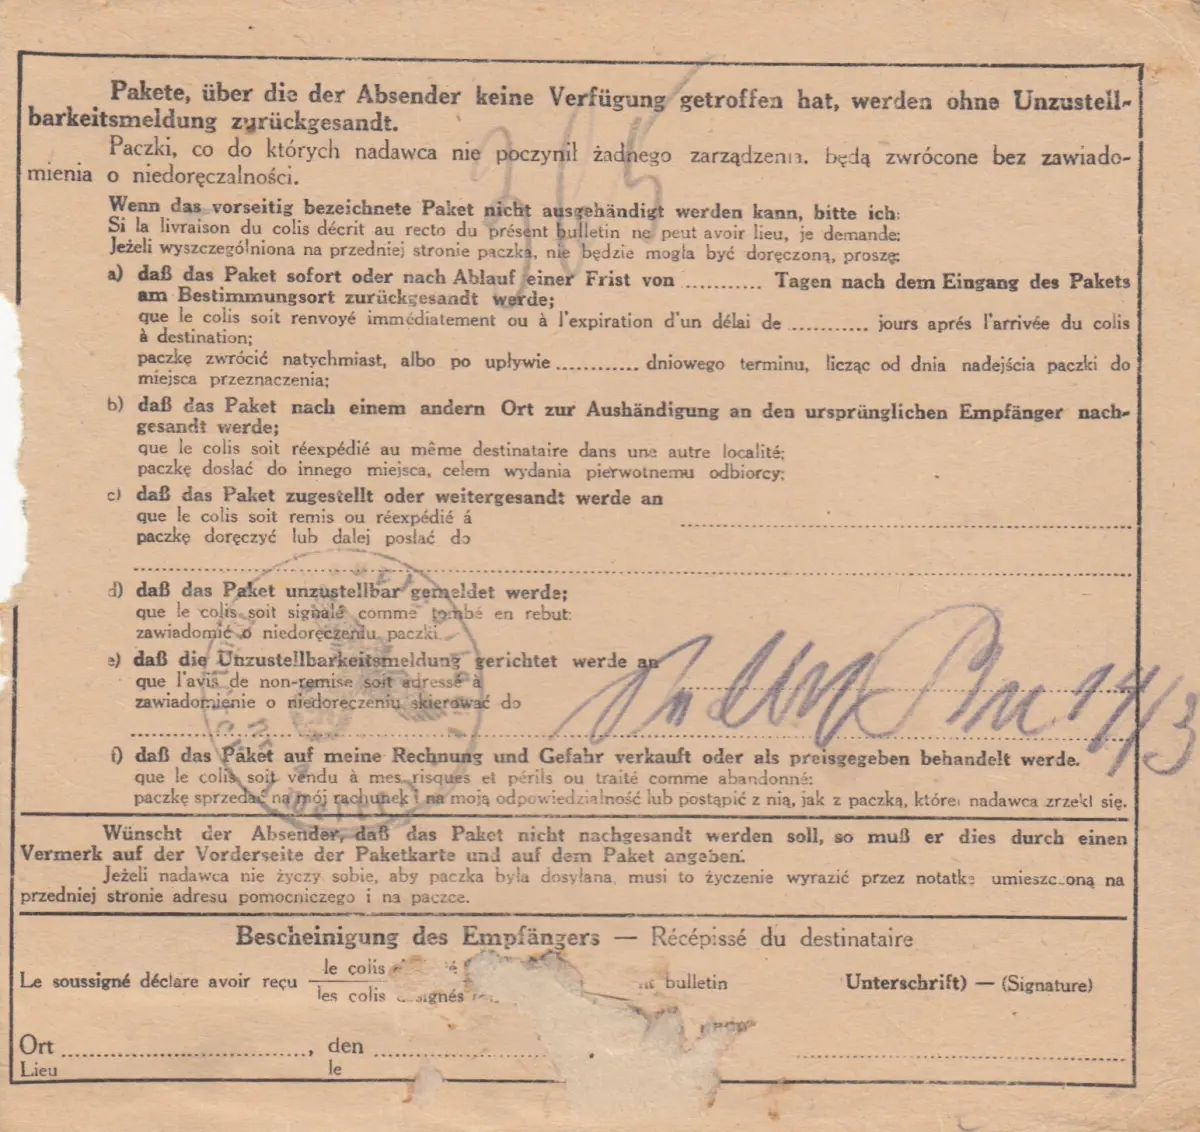 Pakete, über die der Absender keine Verfügung getroffen hat, werden ohne Unzustell-
barkeitsmeldung zurückgesandt.
Paczki, co do których nadawca nie poczynił żadnego zarządzenia, będą zwrócone bez zawiado-
mienia o niedoręczalności.
Wenn das vorseitig bezeichnete Paket nicht ausgehändigt werden kann, bitte ich:
Si la livraison du colis décrit au recto du présent bulletin ne peut avoir lieu, je demande:
Jeżeli wyszczególniona na przedniej stronie paczka, nie będzie mogla być doręczoną, proszę:
a) daß das Paket sofort oder nach Ablauf einer Frist von ........... Tagen nach dem Eingang des Pakets
am Bestimmungsort zurückgesandt werde;
que le colis soit renvoyé immédiatement ou à l'expiration d'un délai de ........... jours aprés l'arrivée du colis
à destination;
paczkę zwrócić natychmiast, albo po upływie ............ dniowego terminu, licząc od dnia nadejścia paczki do
miejsca przeznaczenia;
b) daß das Paket nach einem andern Ort zur Aushändigung an den ursprünglichen Empfänger nach-
gesandt werde;
que le colis soit réexpédié au même destinataire dans une autre localité;
paczkę dosłać do innego miejsca, celem wydania pierwotnemu odbiorcy;
c) daß das Paket zugestellt oder weitergesandt werde an
que le colis soit remis ou réexpédié á
paczkę doręczyć lub dalej posłać do
d) daß das Paket unzustellbar gemeldet werde;
que le colis soit signalé comme tombé en rebut:
zawiadomić o niedoręczeniu paczki
e) daß die Unzustellbarkeitsmeldung gerichtet werde an
que l'avis de non-remise soit adressé à
zawiadomienie o niedoręczeniu skierować do
14/3
f) daß das Paket auf meine Rechnung und Gefahr verkauft oder als preisgegeben behandelt werde.
que le colis soit vendu à mes risques et périls ou traité comme abandonné:
paczkę sprzedać na mój rachunek i na moją odpowiedzialność lub postąpić z nią, jak z paczką, której nadawca zrzekł się.
Wünscht der Absender, daß das Paket nicht nachgesandt werden soll, so muß er dies durch einen
Vermerk auf der Vorderseite der Paketkarte und auf dem Paket angeben.
Jeżeli nadawca nie życzy sobie, aby paczka była dosyłana, musi to życzenie wyrazić przez notatkę umieszczoną na
przedniej stronie adresu pomocniczego i na paczce.
Bescheinigung des Empfängers — Récépissé du destinataire
Le soussigné déclare avoir reçu le colis
les colis bulletin
Unterschrift) — (Signature)
Ort ..............................., den .....................
Lieu le